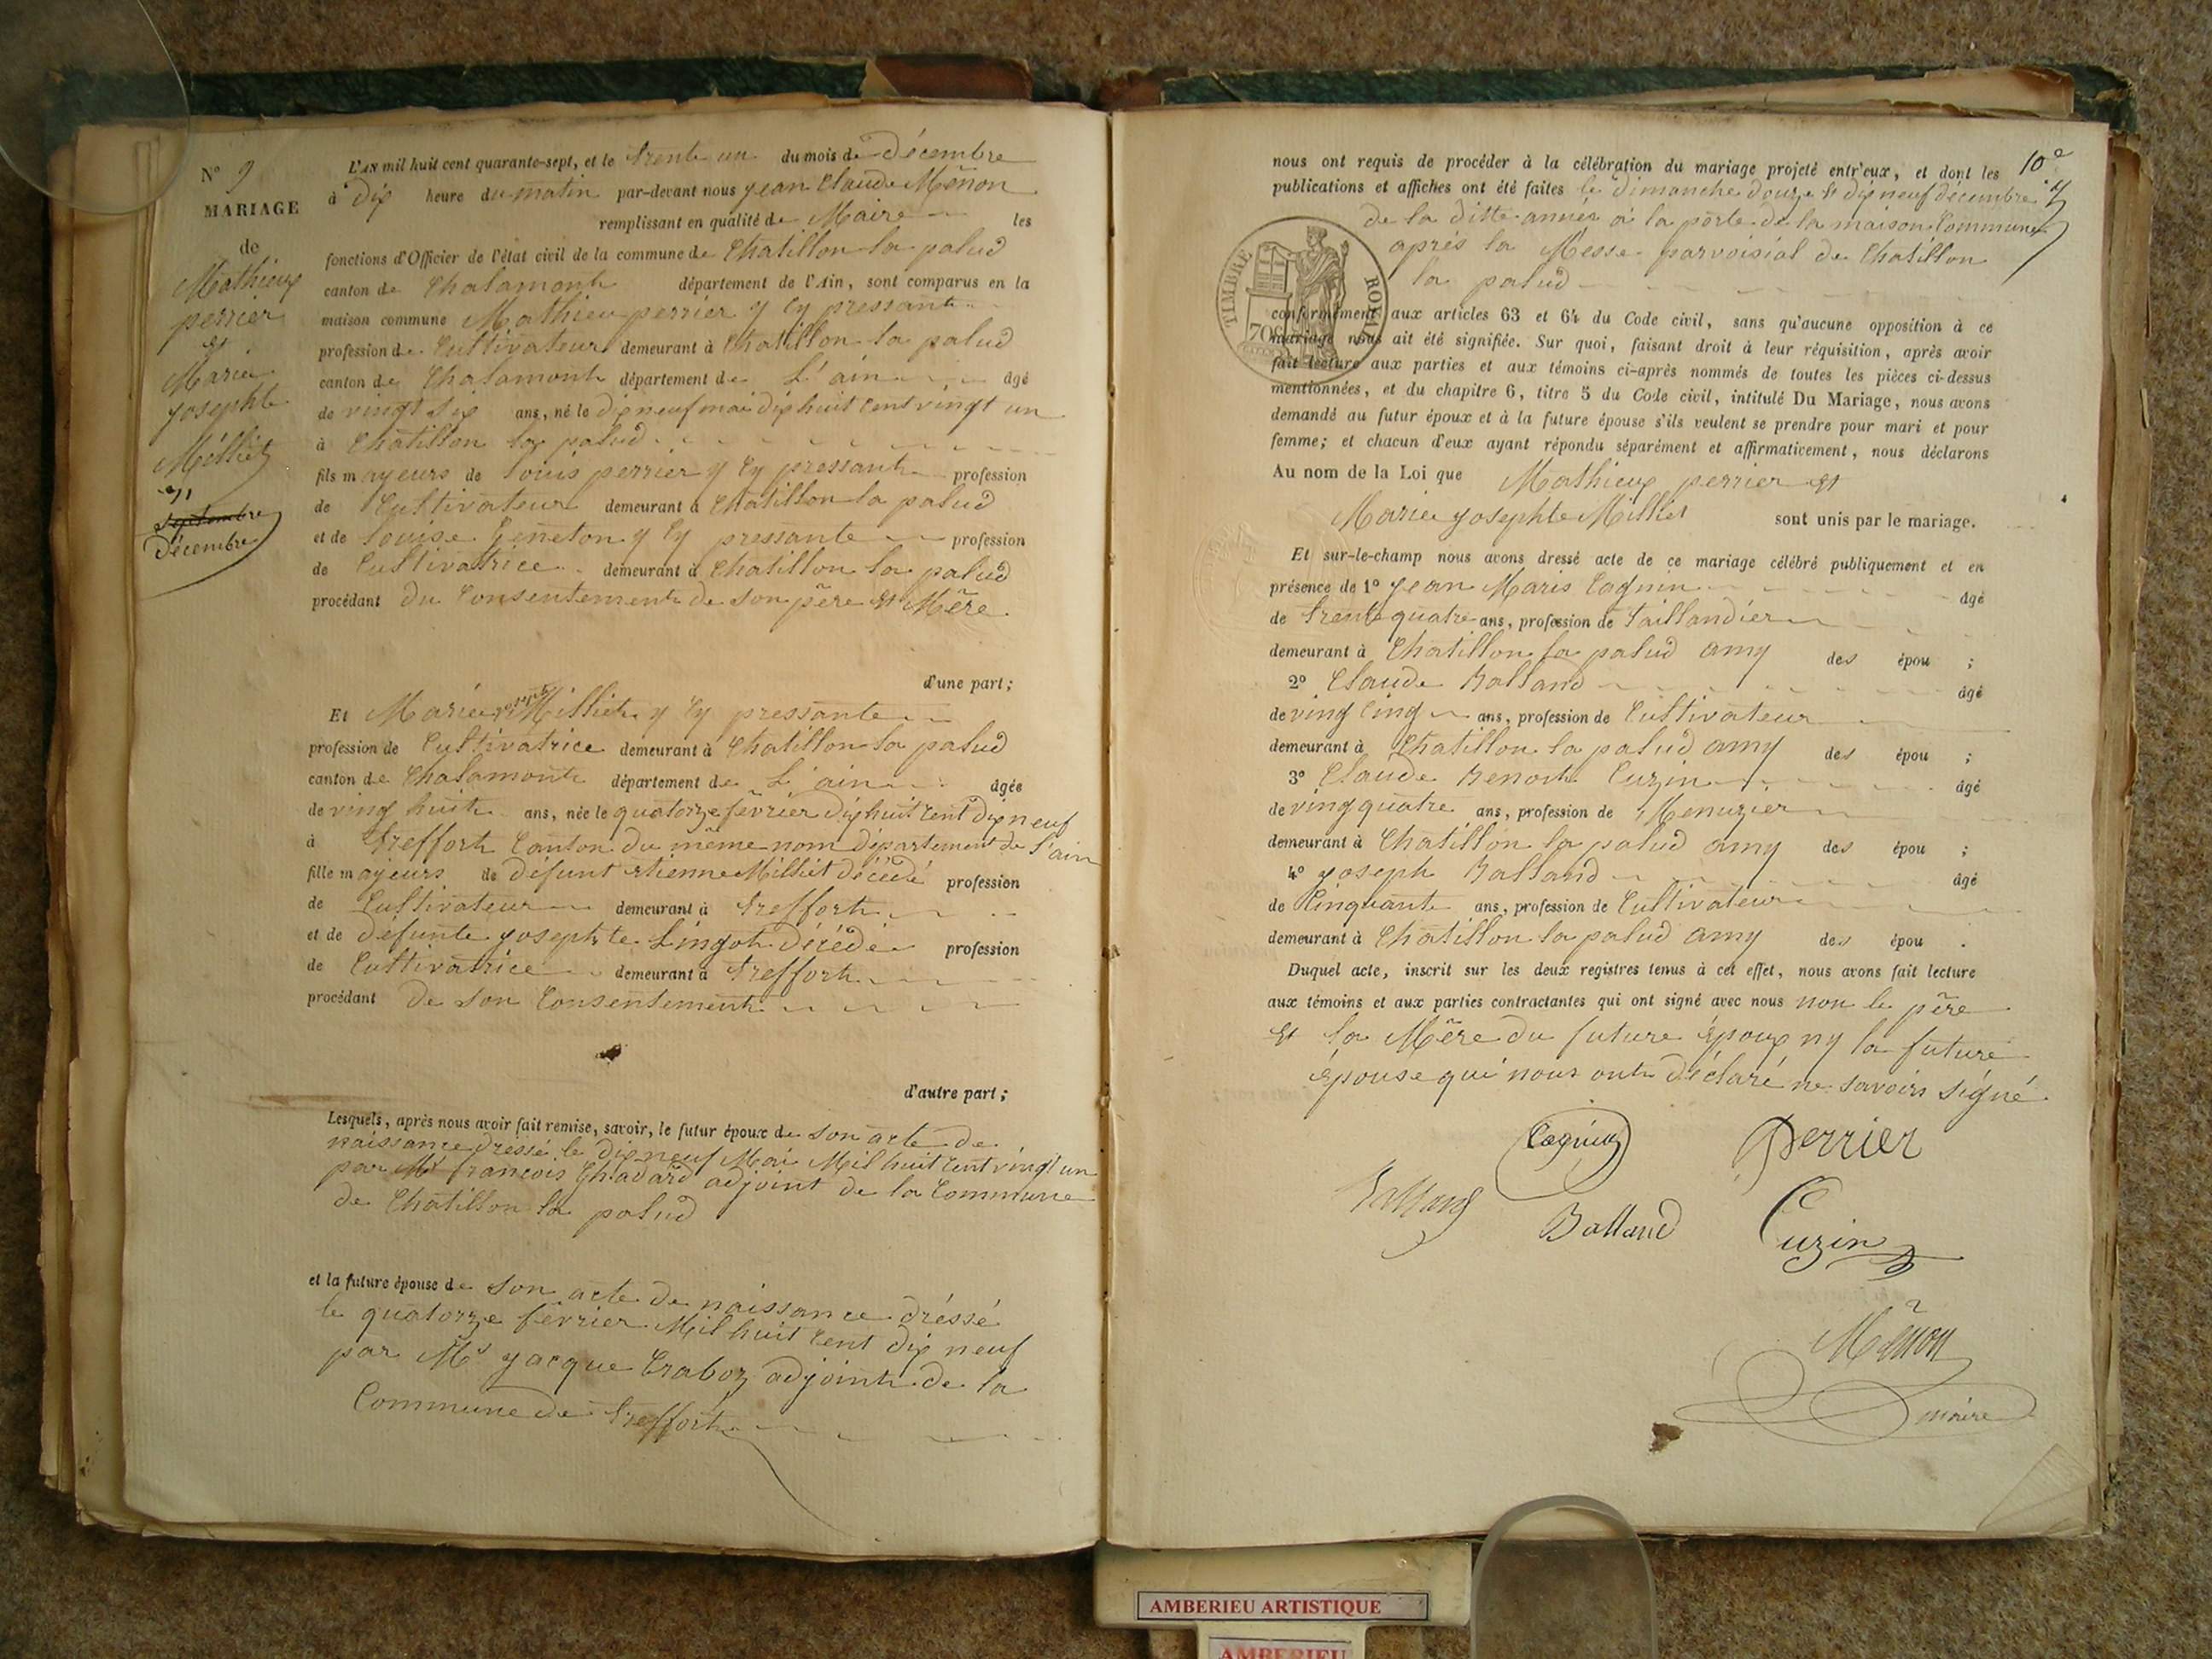 N° 9
MARIAGE
de
Mathieux
perrier
et
Marie
josephte
Milliet
31
septembre
Décembre
L'AN mil huit cent quarante-sept, et le trente un du mois de Décembre
à Dix heure du matin par-devant nous jean Claude Mênon
remplissant en qualité de Maire les
fonctions d'Officier de l'état civil de la commune de Chatillon la palud
canton de Chalamont département de l'Ain, sont comparus en la
maison commune Mathieu perrier y cy pressant
profession de Cultivateur demeurant à Chatillon la palud
canton de Chalamont département de L'ain âgé
de vingt six ans, né le dix neuf mai dix huit cent vingt un
à Chatillon la palud
fils mayeurs de Louis perrier y cy pressant profession
de Cultivateur demeurant à Chatillon la palud
et de Louise Geneton y cy pressante profession
de Cultivatrice demeurant à Chatillon la palud
procédant du Consentement de son père et Mère
d'une part;
Et Marie josephte Milliet y cy pressante
profession de Cultivatrice demeurant à Chatillon la palud
canton de Chalamont département de L'ain âgée
de ving huit ans, née le quatorze février dix huit cent dix neuf
à Treffort Canton du même nom département de l'ain
fille mayeurs de défunt etienne Milliet décédé profession
de Cultivateur demeurant à Treffort
et de défunte josephte Lingot décédé profession
de Cultivatrice demeurant à Treffort
procédant de son Consentement
d'autre part;
Lesquels, après nous avoir fait remise, savoir, le futur époux de son acte de
naissance dressé le dix neuf Mai Mil huit cent vingt un
par Mr françois Chadard adjoint de la Commune
de Chatillon la palud
et la future épouse de son acte de naissance dréssé
le quatorze février Mil huit cent dix neuf
par Mr jacque Craboz adjoint de la
Commune de Treffort
10e
nous ont requis de procéder à la célébration du mariage projeté entr'eux, et dont les
publications et affiches ont été faites le dimanche douze et dix neuf décembre
de la ditte année à la porte de la maison Commune
après la Messe parroisial de Chatillon
la palud
TIMBRE ROYAL
70c
conformément aux articles 63 et 64 du Code civil, sans qu'aucune opposition à ce
mariage nous ait été signifiée. Sur quoi, faisant droit à leur réquisition, après avoir
fait lecture aux parties et aux témoins ci-après nommés de toutes les pièces ci-dessus
mentionnées, et du chapitre 6, titre 5 du Code civil, intitulé Du Mariage, nous avons
demandé au futur époux et à la future épouse s'ils veulent se prendre pour mari et pour
femme; et chacun d'eux ayant répondu séparément et affirmativement, nous déclarons
Au nom de la Loi que Mathieux perrier et
Marie josephte Milliet sont unis par le mariage.
Et sur-le-champ nous avons dressé acte de ce mariage célébré publiquement et en
présence de 1° jean Marie Cognin âgé
de trente quatre ans, profession de taillandier
demeurant à Chatillon la palud amy des épou ;
2° Claude Balland âgé
de ving cinq ans, profession de Cultivateur
demeurant à Chatillon la palud amy des épou ;
3° Claude Benoit Cuzin âgé
de ving quatre ans, profession de Menuzier
demeurant à Chatillon la palud amy des épou ;
4° joseph Balland âgé
de Cinquante ans, profession de Cultivateur
demeurant à Chatillon la palud amy des épou .
Duquel acte, inscrit sur les deux registres tenus à cet effet, nous avons fait lecture
aux témoins et aux parties contractantes qui ont signé avec nous non le père
et la Mère du future époux ny la future
épouse qui nous ont déclaré ne savoirs signé
Cognin Perrier
Balland Balland Cuzin
Mênon
maire
AMBERIEU ARTISTIQUE
AMBERIEU